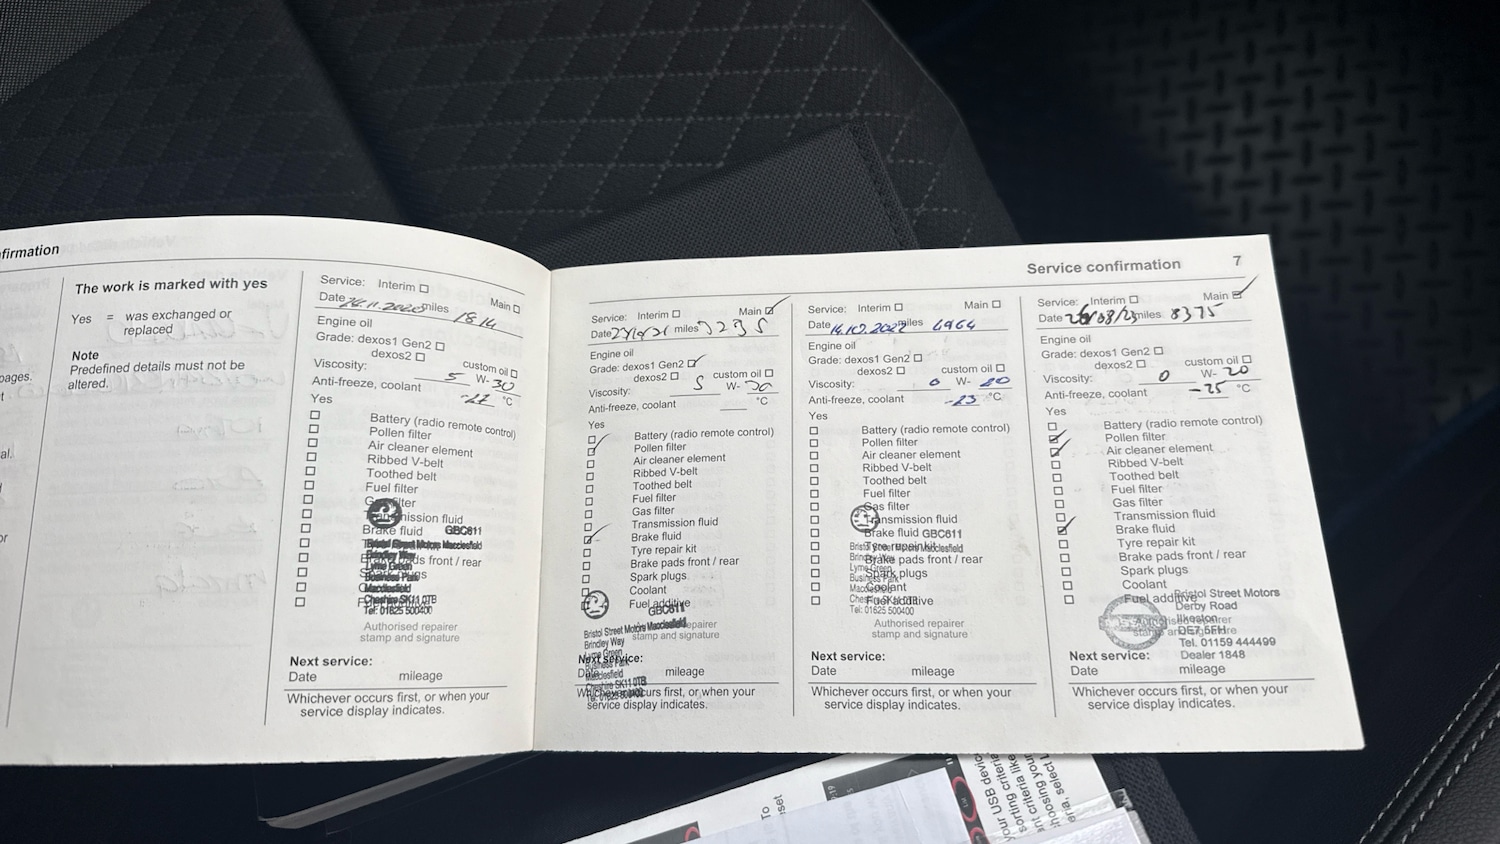 firmation
The work is marked with yes
Yes = was exchanged or
replaced
Note
Predefined details must not be
altered.
pages.
Service: Interim ☐
Main ☐
Date 26.11.2020 miles 1814
Engine oil
Grade: dexos1 Gen2 ☐
dexos2 ☐
custom oil ☐
Viscosity: 5 W- 30
Anti-freeze, coolant °C
Yes
Battery (radio remote control)
Pollen filter
Air cleaner element
Ribbed V-belt
Toothed belt
Fuel filter
Gas filter
Transmission fluid
Brake fluid GBC611
Bristol Street Motors Macclesfield
Brindley Way
Lyme Green
Business Park
Macclesfield
Cheshire SK11 0TB
Tel: 01625 500400
Authorised repairer
stamp and signature
Next service:
Date mileage
Whichever occurs first, or when your
service display indicates.
Service confirmation 7
Service: Interim ☐ Main ☑
Date miles
Engine oil
Grade: dexos1 Gen2 ☑
dexos2 ☐ custom oil ☐
Viscosity: 5 W-
Anti-freeze, coolant °C
Yes
Battery (radio remote control)
Pollen filter
Air cleaner element
Ribbed V-belt
Toothed belt
Fuel filter
Gas filter
Transmission fluid
Brake fluid
Tyre repair kit
Brake pads front / rear
Spark plugs
Coolant
Fuel additive
GBC611
Bristol Street Motors Macclesfield
Brindley Way
Lyme Green
Business Park
Macclesfield
Cheshire SK11 0TB
Tel: 01625 500400
stamp and signature
Next service:
Date mileage
Whichever occurs first, or when your
service display indicates.
Service: Interim ☐ Main ☐
Date 14.10.2022 miles 6964
Engine oil
Grade: dexos1 Gen2 ☐
dexos2 ☐ custom oil ☐
Viscosity: 0 W- 20
Anti-freeze, coolant -23 °C
Yes
Battery (radio remote control)
Pollen filter
Air cleaner element
Ribbed V-belt
Toothed belt
Fuel filter
Gas filter
Transmission fluid
Brake fluid GBC611
Tyre repair kit
Bristol Street Motors Macclesfield
Brake pads front / rear
Brindley Way
Lyme Green
Spark plugs
Business Park
Coolant
Macclesfield
Fuel additive
Cheshire SK11 0TB
Tel: 01625 500400
Authorised repairer
stamp and signature
Next service:
Date mileage
Whichever occurs first, or when your
service display indicates.
Service: Interim ☐ Main ☑
Date /08/23 miles 8375
Engine oil
Grade: dexos1 Gen2 ☐
dexos2 ☐ custom oil ☐
Viscosity: 0 W- 20
Anti-freeze, coolant -25 °C
Yes
Battery (radio remote control)
Pollen filter
Air cleaner element
Ribbed V-belt
Toothed belt
Fuel filter
Gas filter
Transmission fluid
Brake fluid
Tyre repair kit
Brake pads front / rear
Spark plugs
Coolant
Fuel additive
Bristol Street Motors
Derby Road
Ilkeston
DE7 5FH
Tel. 01159 444499
Dealer 1848
Next service:
Date mileage
Whichever occurs first, or when your
service display indicates.
To
set
your USB devic
sorting criteria
nt criteria like
hoosing your